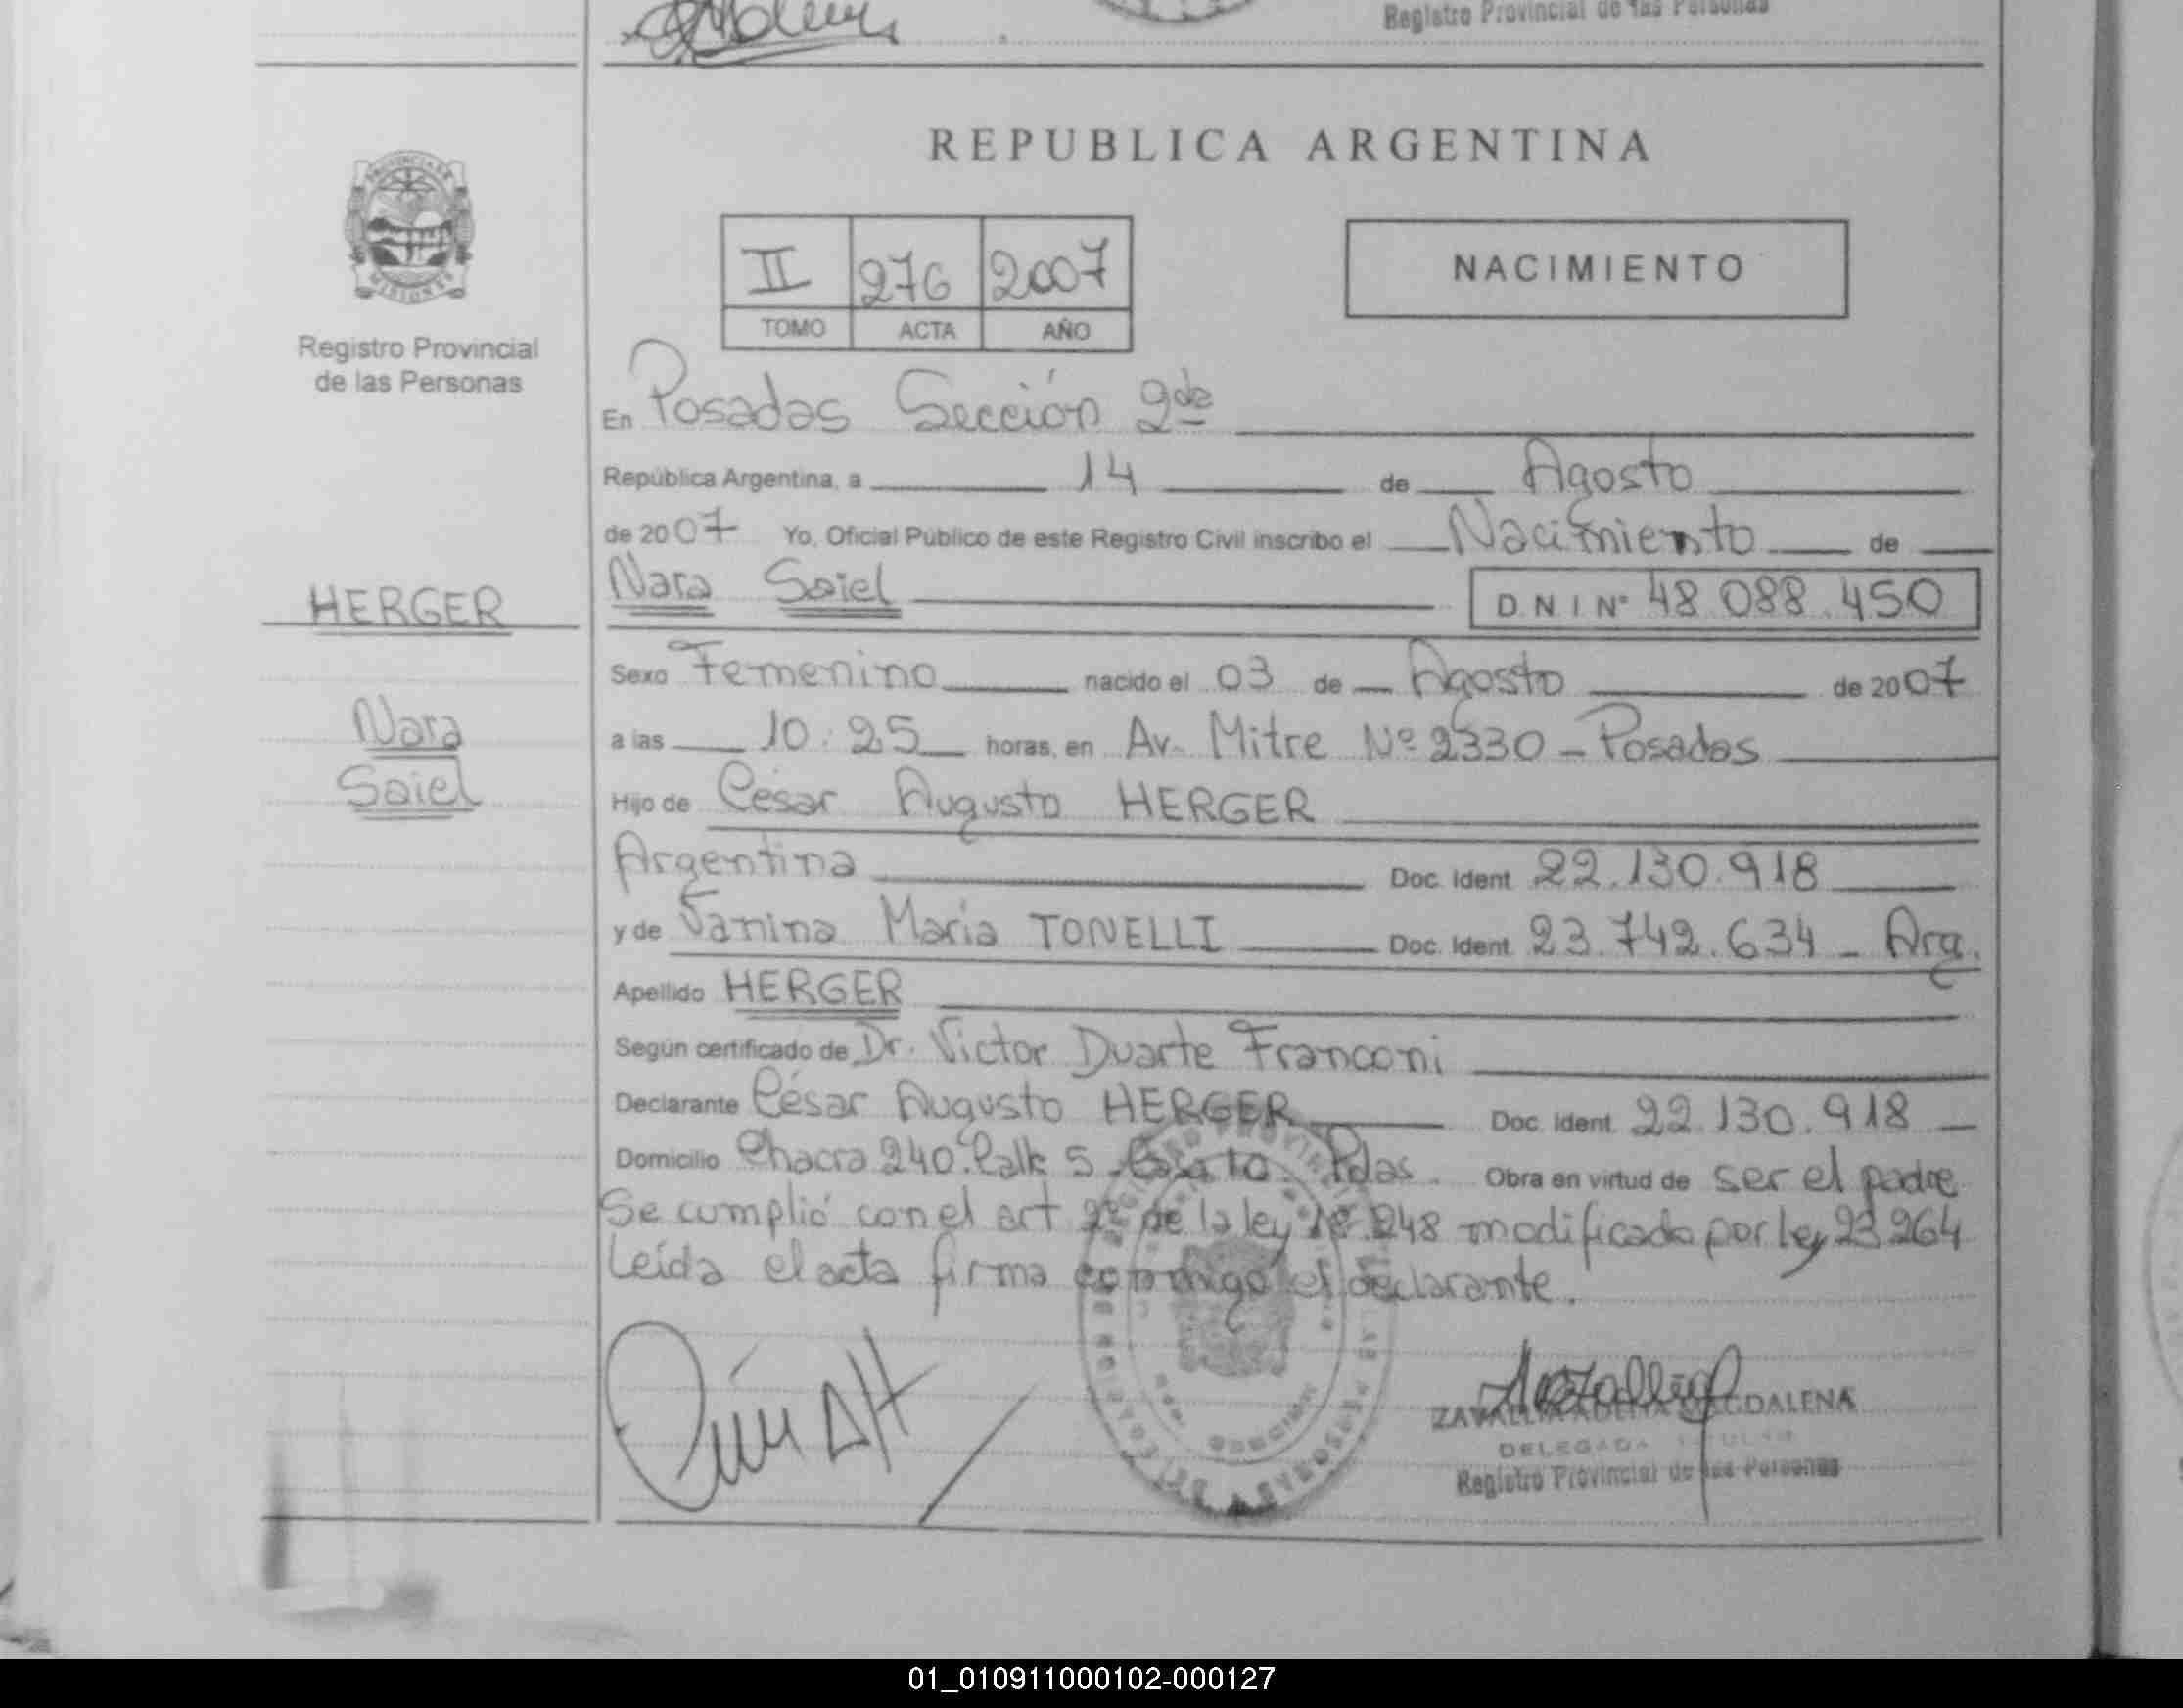 Registro Provincial de las Personas
PROVINCIA DE
MISIONES
Registro Provincial
de las Personas
HERGER
Nara
Saiel
REPUBLICA ARGENTINA
II 276 2007
TOMO ACTA AÑO
NACIMIENTO
En Posadas Sección 2da
República Argentina, a 14 de Agosto
de 2007 Yo, Oficial Público de este Registro Civil inscribo el Nacimiento de
Nara Saiel D.N.I Nº 48.088.450
Sexo Femenino nacido el 03 de Agosto de 2007
a las 10:25 horas, en Av. Mitre Nº 2330 - Posadas
Hijo de César Augusto HERGER
Argentina Doc. Ident. 22.130.918
y de Vanina María TONELLI Doc. Ident. 23.742.634 - Arg.
Apellido HERGER
Según certificado de Dr. Victor Duarte Franconi
Declarante César Augusto HERGER Doc. Ident. 22.130.918
Domicilio Chacra 240. Calle 5 Casa 10 Pdas. Obra en virtud de ser el padre
Se cumplió con el art 2º de la ley 18.248 modificada por ley 23264
Leída el acta firma conmigo el declarante.
DELEGADA TITULAR
Registro Provincial de las Personas
01_010911000102-000127